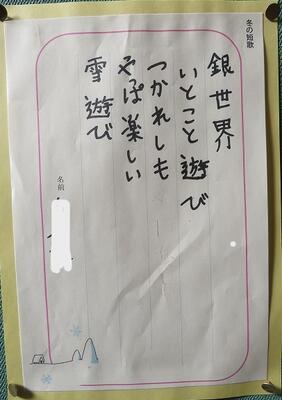 冬の短歌
銀世界
いとこと遊び
つかれしも
やぱ楽しい
雪遊び
名前